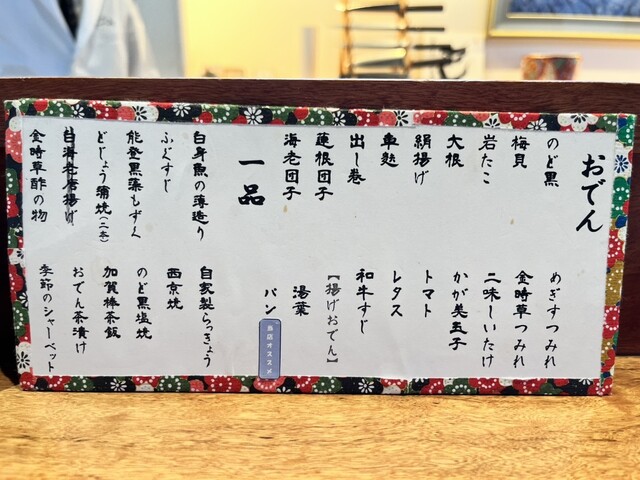 おでん
のど黒
梅貝
岩だこ
大根
絹揚げ
車麩
出し巻
蓮根団子
海老団子
めぎすつみれ
金時草つみれ
二味しいたけ
かが美玉子
トマト
レタス
和牛すじ
【揚げおでん】
湯葉
パン
当店オススメ
一品
白身魚の薄造り
ふぐすじ
能登黒藻もずく
どじょう蒲焼(二本)
白海老唐揚げ
金時草酢の物
自家製らっきょう
西京焼
のど黒塩焼
加賀棒茶飯
おでん茶漬け
季節のシャーベット